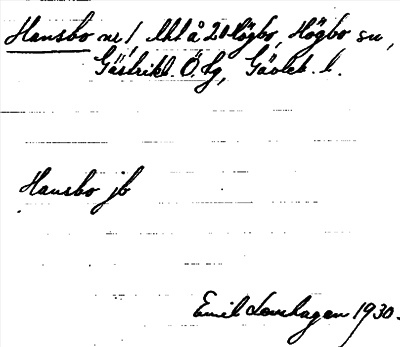 Hansbo nr 1 lht å 21 Högbo, Högbo sn,
Gästrikl. Ö. tg, Gävleb. l.
Hansbo jb
Emil Lovehagen 1930.